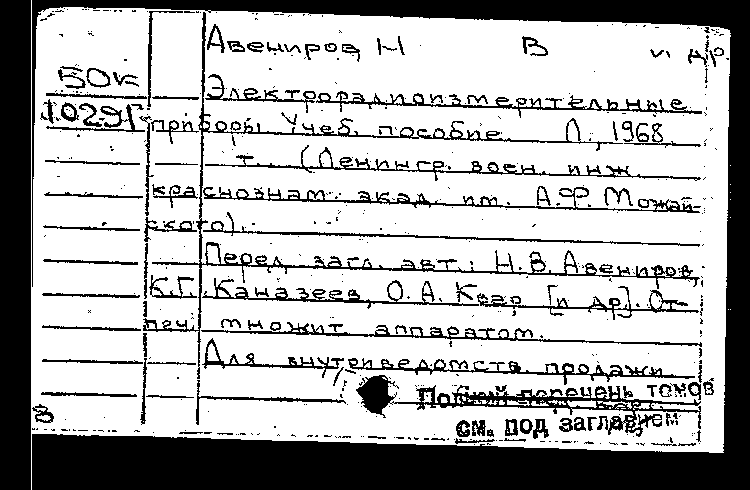 Авениров, Н В и др.
50к
Электрорадиоизмерительные
1029Г
приборы Учеб. пособие. Л., 1968.
т. (Ленингр. воен. инж.
краснознам. акад. им. А.Ф. Можай-
ского).
Перед загл. авт.: Н.В. Авениров,
К.Г. Каназеев, О.А. Квар [и др]. От-
печ. множит аппаратом.
Для внутриведомств. продажи
перечень томов
см. под заглавием
В